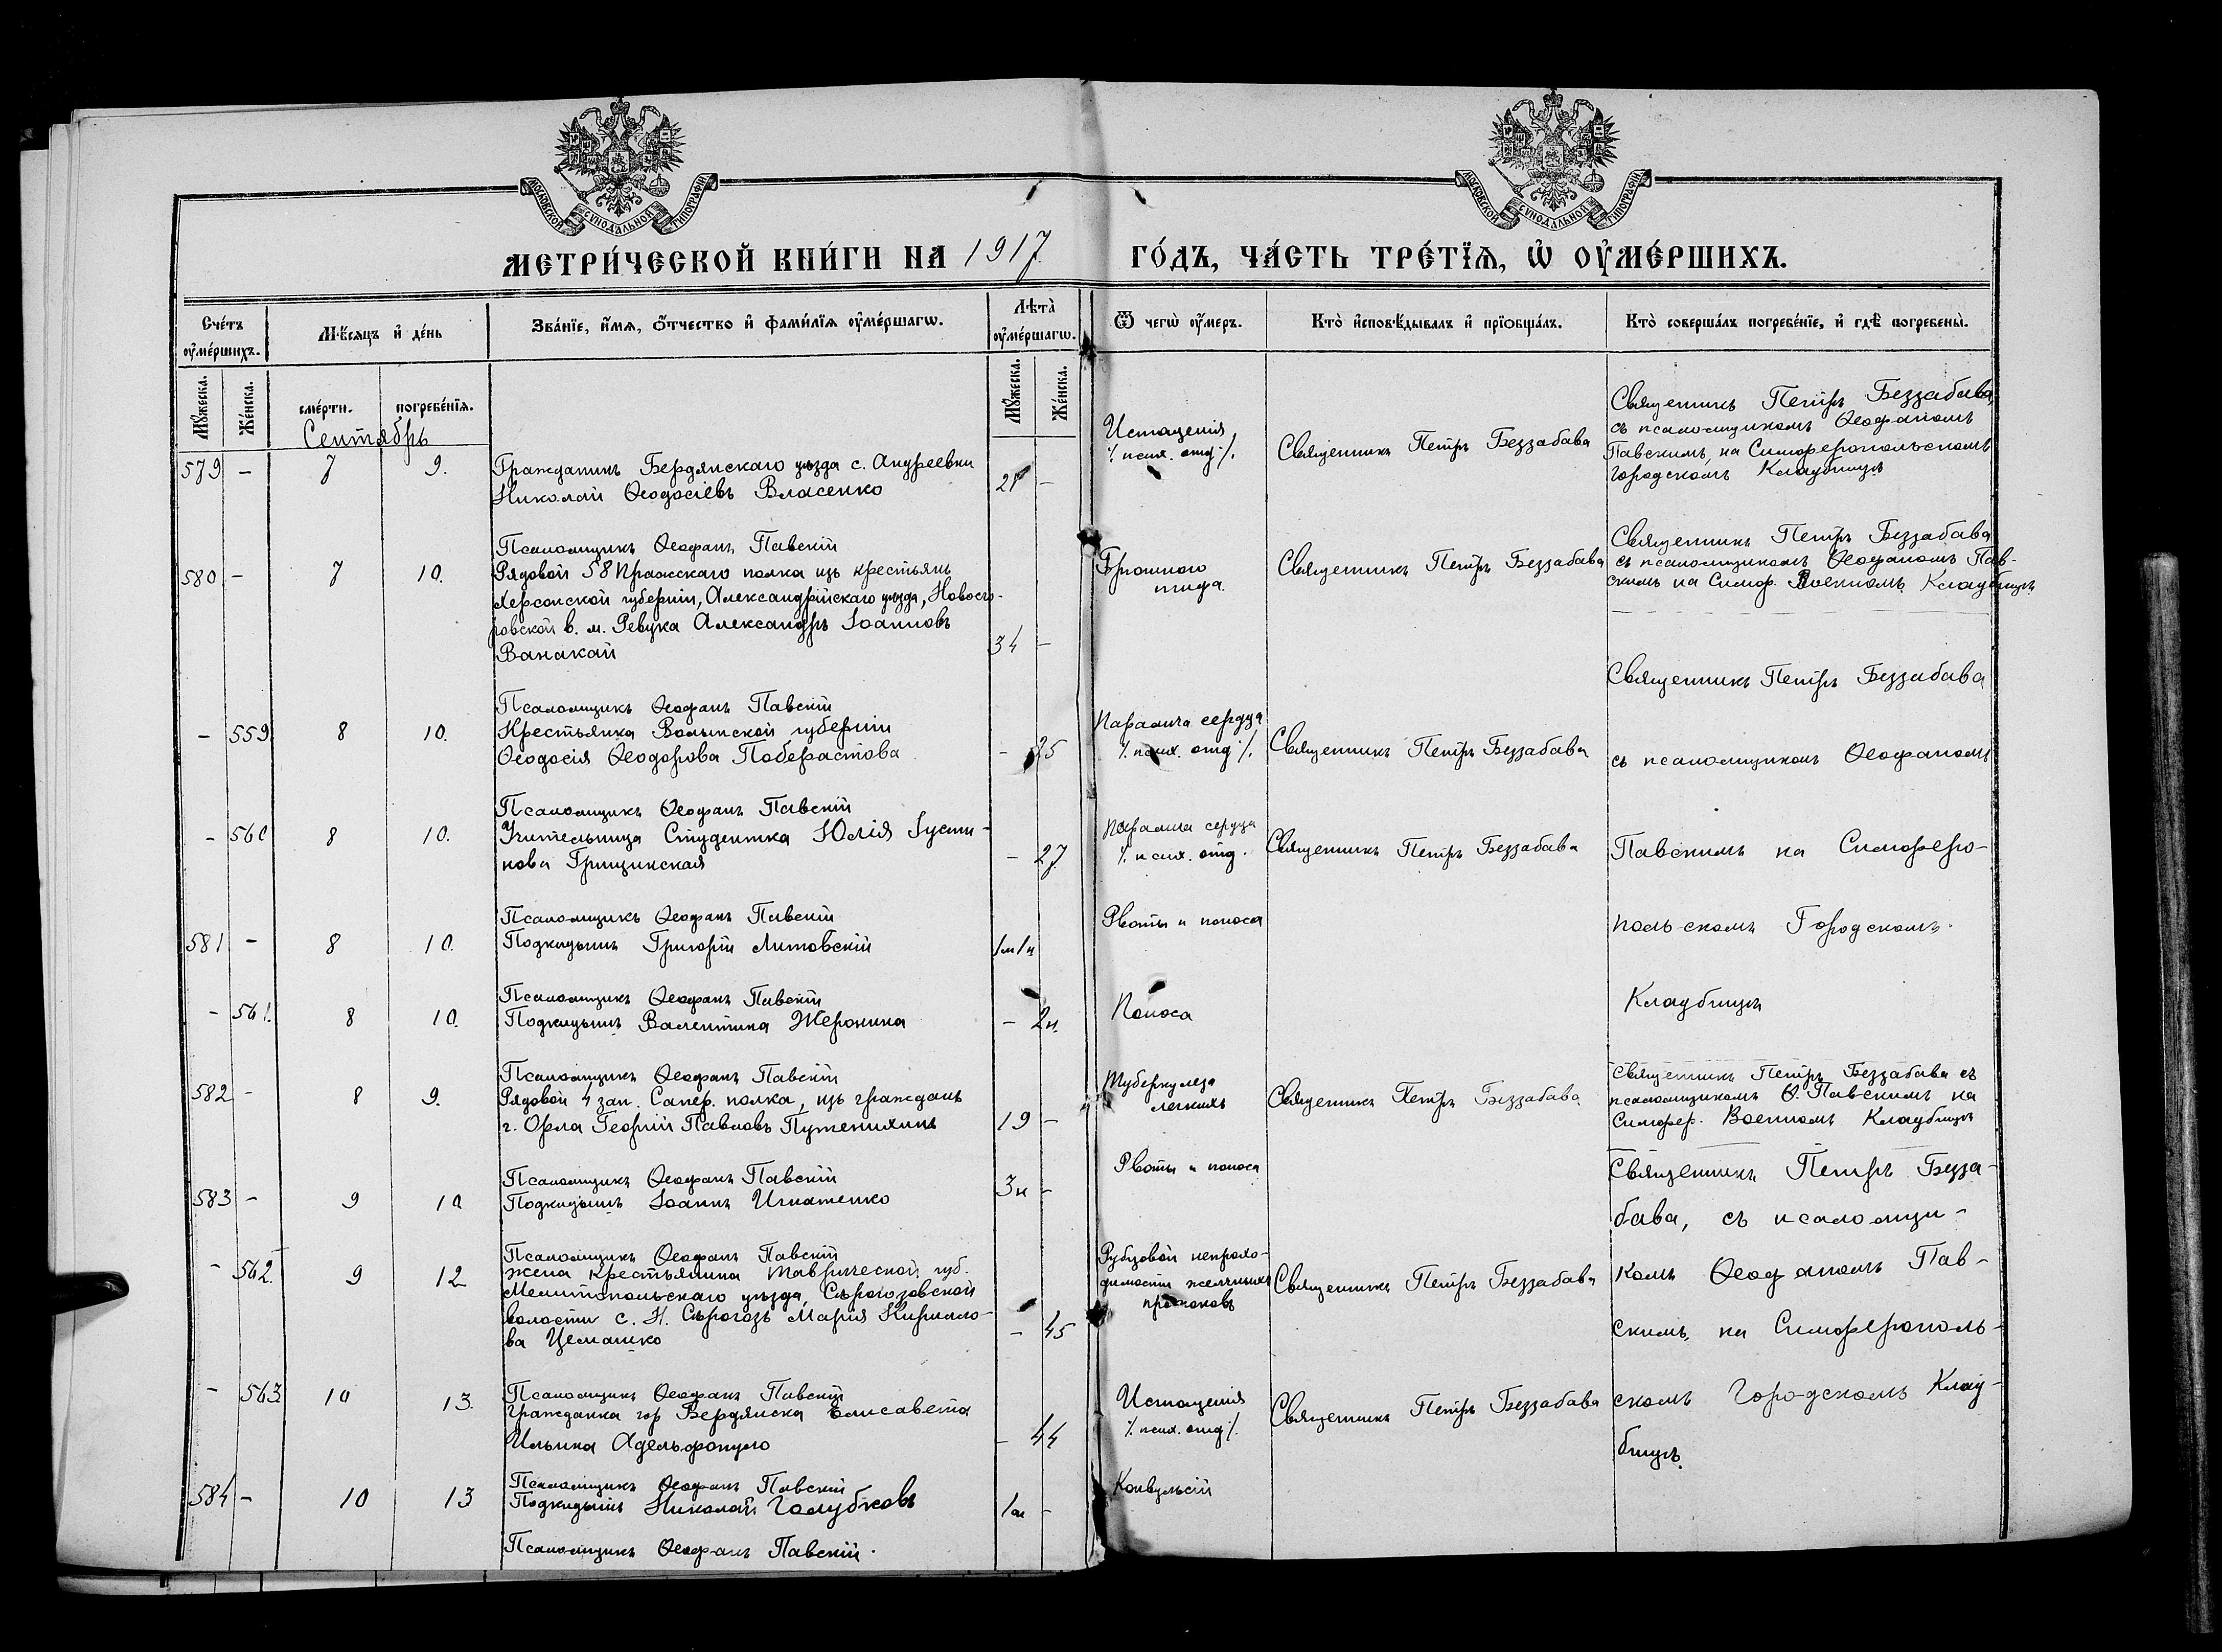 МОСКОВСКОЙ СѴНОДАЛЬНОЙ ТИПОГРАФІИ
МОСКОВСКОЙ СѴНОДАЛЬНОЙ ТИПОГРАФІИ
МЕТРИ́ЧЕСКОЙ КНИ́ГИ НА 1917 ГО́ДЪ, ЧА́СТЬ ТРЕ́ТЇѦ, Ѡ҆ ОУ҆МЕ́РШИХЪ.
Сче́тъ оу҆ме́ршихъ.
Мѣ́сѧцъ и҆ де́нь
Зва́нїе, и҆́мѧ, ѻ҆́тчество и҆ фами́лїѧ оу҆ме́ршагѡ.
Лѣта̀ оу҆ме́ршагѡ.
Ѿ чегѡ̀ оу҆́меръ.
Кто̀ и҆сповѣ́дывалъ и҆ прїѻбща́лъ.
Кто̀ соверша́лъ погребе́нїе, и҆ гдѣ̀ погребены̀.
Мꙋ́жеска. Же́нска. сме́рти. погребе́нїѧ. Мꙋ́жеска. Же́нска.
Сентябрь
579 - 7 9. Гражданинъ Бердянскаго уѣзда с. Андреевки
Николай Ѳеодосіевъ Власенко 21 -
Истощенія
/. псих. отд. /.
Священникъ Петръ Беззабава
Священникъ Петръ Беззабава,
съ псаломщикомъ Ѳеофаномъ
Павскимъ, на Симферопольскомъ
Городскомъ Кладбищѣ
Псаломщикъ Ѳеофанъ Павскій
580 - 7 10. Рядовой 58 Пражскаго полка изъ крестьянъ
Херсонской губерніи, Александрійскаго уѣзда, Новосто-
ровской в. м. Ревука Александръ Іоанновъ
Ванакай 34 -
Брюшного
тифа.
Священникъ Петръ Беззабава
Священникъ Петръ Беззабава
съ псаломщикомъ Ѳеофаномъ Пав-
скимъ на Симф. Военномъ Кладбищѣ
Псаломщикъ Ѳеофанъ Павскій
- 559 8 10. Крестьянка Волынской губерніи
Ѳеодосія Ѳеодорова Поберастова - 35
Паралича сердца
/. псих. отд. /.
Священникъ Петръ Беззабава
Священникъ Петръ Беззабава
съ псаломщикомъ Ѳеофаномъ
Псаломщикъ Ѳеофанъ Павскій
- 560 8 10. Учительница Студентка Юлія Іусти-
нова Грищинская - 27
Паралича сердца
/. псих. отд.
Священникъ Петръ Беззабава
Павскимъ на Симферо-
Псаломщикъ Ѳеофанъ Павскій
581 - 8 10. Подкидышъ Григорій Литовскій 1м1н
Рвоты и поноса
польскомъ Городскомъ
Псаломщикъ Ѳеофанъ Павскій
- 561. 8 10. Подкидышъ Валентина Жеронина - 2н.
Поноса
Кладбищѣ
Псаломщикъ Ѳеофанъ Павскій
582 - 8 9. Рядовой 4 зап. Сапер. полка, изъ гражданъ
г. Орла Георгій Павловъ Путенихинъ 19 -
Туберкулеза
легкихъ
Священникъ Петръ Беззабава
Священникъ Петръ Беззабава съ
псаломщикомъ Ѳ. Павскимъ на
Симфер. Военномъ Кладбищѣ
Псаломщикъ Ѳеофанъ Павскій
583 - 9 10 Подкидышъ Іоаннъ Игнатенко 3н -
Рвоты и поноса
Священникъ Петръ Безза-
бава, съ псаломщи-
Псаломщикъ Ѳеофанъ Павскій
- 562. 9 12 жена крестьянина Таврической губ.
Мелитопольскаго уѣзда, Сѣрогозовской
волости с. Н. Сѣрогозъ Марія Кирилло-
ва Цемашко - 45
Рубцовой непрохо-
димости желчныхъ
протоковъ
Священникъ Петръ Беззабава
комъ Ѳеофаномъ Пав-
скимъ, на Симферополь-
Псаломщикъ Ѳеофанъ Павскій
- 563 10 13. Гражданка гор Бердянска Елисавета
Ильина Адельфопуло - 44
Истощенія
/. псих. отд. /.
Священникъ Петръ Беззабава
скомъ Городскомъ Клад-
бищѣ.
Псаломщикъ Ѳеофанъ Павскій
584 - 10 13 Подкидышъ Николай Голубковъ 1м -
Конвульсій
Псаломщикъ Ѳеофанъ Павскій.